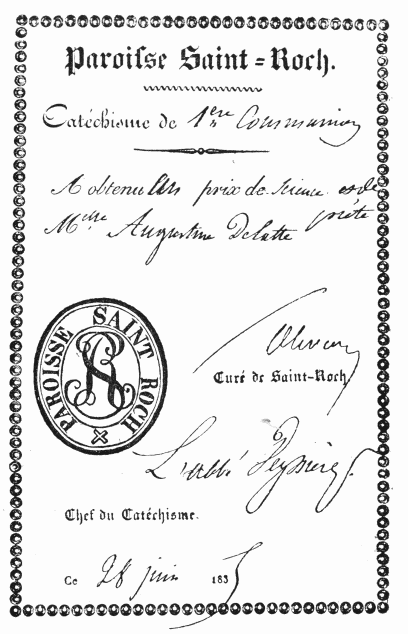 Paroisse Saint=Roch.
Catéchisme de 1ere Communion
A obtenu Un prix de Science et de
piété
Melle Augustine Delatte
PAROISSE SAINT ROCH
SR
Olivier
Curé de Saint-Roch
L'abbé
Chef du Catéchisme.
Ce 28 juin 1835